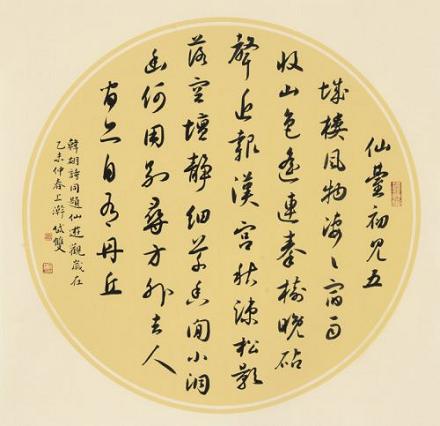 仙臺初见五
城樓风物凄〻宿雨
收山色遥連秦樹晚砧
聲近報漢宫秋疎松影
落空壇静细草香闲小洞
幽何用别尋方外去人
间亦自有丹丘
韓翃詩同題仙遊觀歲在
乙未仲春上澣雙